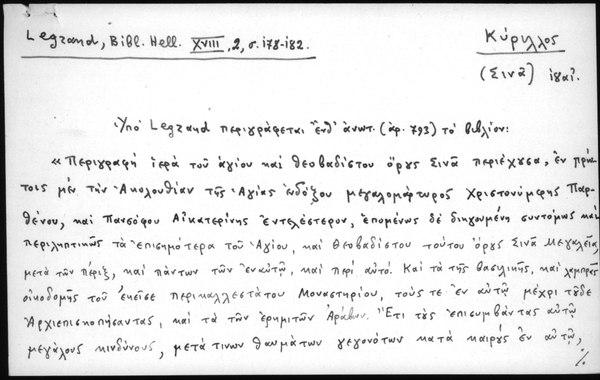 Legrand, Bibl. Hell. XVIII, 2, σ. 178-182.
Κύριλλος
(Σινᾶ) 18αἰ.
Ὑπὸ Legrand περιγράφεται ἔνθ' ἀνωτ. (ἀρ. 793) τὸ βιβλίον:
« Περιγραφὴ ἱερὰ τοῦ ἁγίου καὶ θεοβαδίστου ὄρους Σινᾶ περιέχουσα, ἐν πρώ-
τοις μὲν τὴν Ἀκολουθίαν τῆς Ἁγίας ἐνδόξου μεγαλομάρτυρος Χριστονύμφης Παρ-
θένου, καὶ Πανσόφου Αἰκατερίνης ἐντελέστερον, ἑπομένως δὲ διηγουμένη συντόμως καὶ
περιληπτικῶς τὰ ἐπισημότερα τοῦ Ἁγίου, καὶ Θεοβαδίστου τούτου ὄρους Σινᾶ μεγαλεῖα,
μετὰ τῶν πέριξ, καὶ πάντων τῶν ἐν αὐτῷ, καὶ περὶ αὐτό. Καὶ τὰ τῆς βασιλικῆς, καὶ λαμπρᾶς
οἰκοδομῆς τοῦ ἐκεῖσε περικαλλεστάτου Μοναστηρίου, τούς τε ἐν αὐτῷ μέχρι τοῦδε
Ἀρχιεπισκοπήσαντας, καὶ τὰ τῶν ἐρημιτῶν Ἀράβων. Ἔτι τοὺς ἐπισυμβάντας αὐτῷ
μεγάλους κινδύνους, μετά τινων θαυμάτων γεγονότων κατὰ καιροὺς ἐν αὐτῷ,
./.